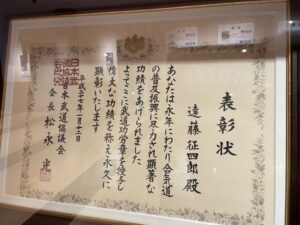 表彰状
遠藤征四郎殿
あなたは永年にわたり合氣道
の普及振興に尽力され顕著な
功績をあげられました
よってここに武道功労章を授与し
偉大な功績を称え永久に
顕彰いたします
平成二十七年一月十二日
日本武道協議会
会長 松永光